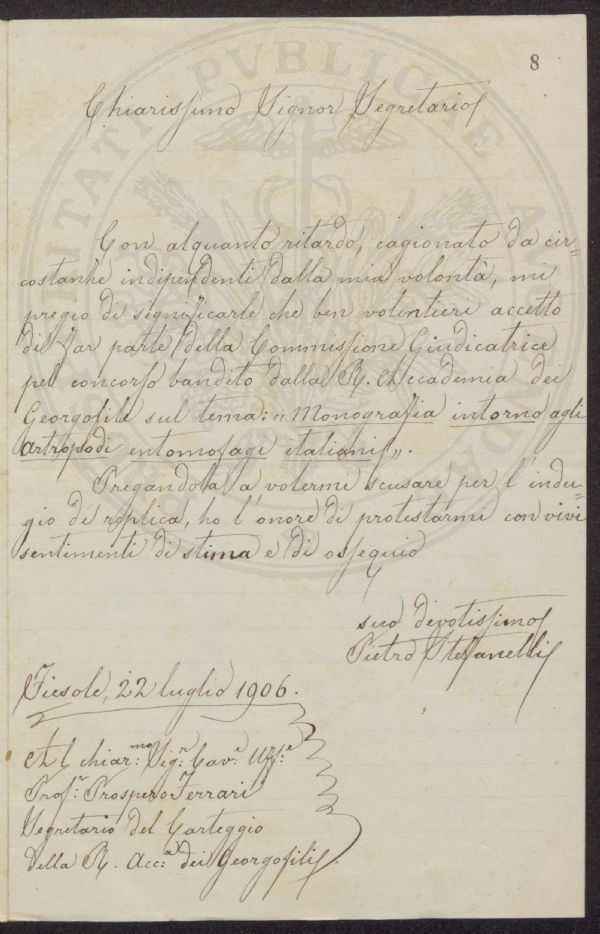 8
Chiarissimo Signor Segretario
Con alquanto ritardo, cagionato da cir=
costanze indipendenti dalla mia volontà, mi
pregio di significarle che ben volentieri accetto
di far parte della Commissione Giudicatrice
pel concorso bandito dalla R. Accademia dei
Georgofili sul tema: "Monografia intorno agli
artropodi entomofagi italiani".
Pregandola a volermi scusare per l'indu=
gio di replica, ho l'onore di protestarmi con vivi
sentimenti di stima e di ossequio
suo devotissimo
Pietro Stefanelli
Fiesole, 22 luglio 1906.
Al chiar.mo Sig.r Cav.e Uff.e
Prof.r Prospero Ferrari
Segretario del Carteggio
della R. Acc.a dei Georgofili.